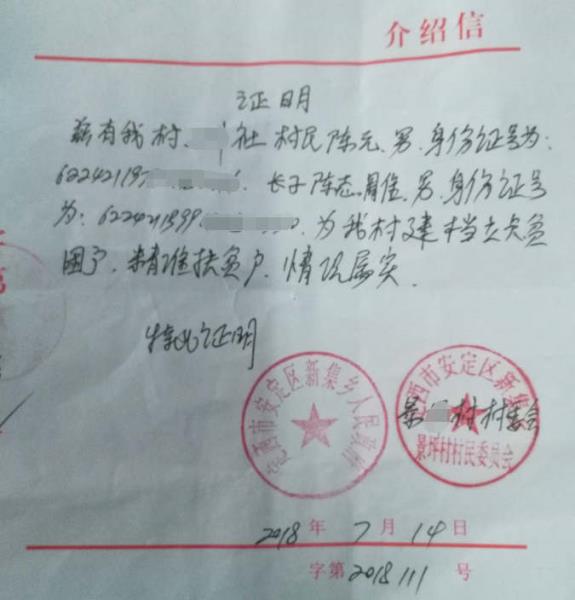 介绍信
证明
兹有我村 社村民陈元,男,身份证号为:
622421197 长子陈志 佳,男,身份证号
为:622421199 ,为我村建档立卡贫
困户,精准扶贫户,情况属实.
特此证明
定西市安定区新集乡人民政府
西市安定区新集
景坪村村民委员会
景 村村委会
2018年7月14日
字第2018111号